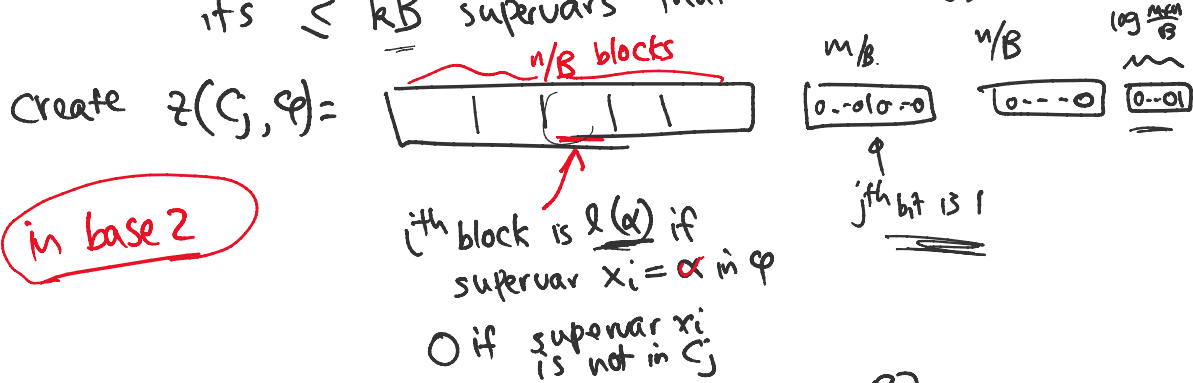 its ≤ kB supervars
n/B blocks
m/B
n/B
log m+n/B
Create z(Cj, φ) =
0--010--0
0---0
0--01
in base 2
ith block is l(α) if
supervar xi = α in φ
0 if supervar xi
is not in Cj
jth bit is 1